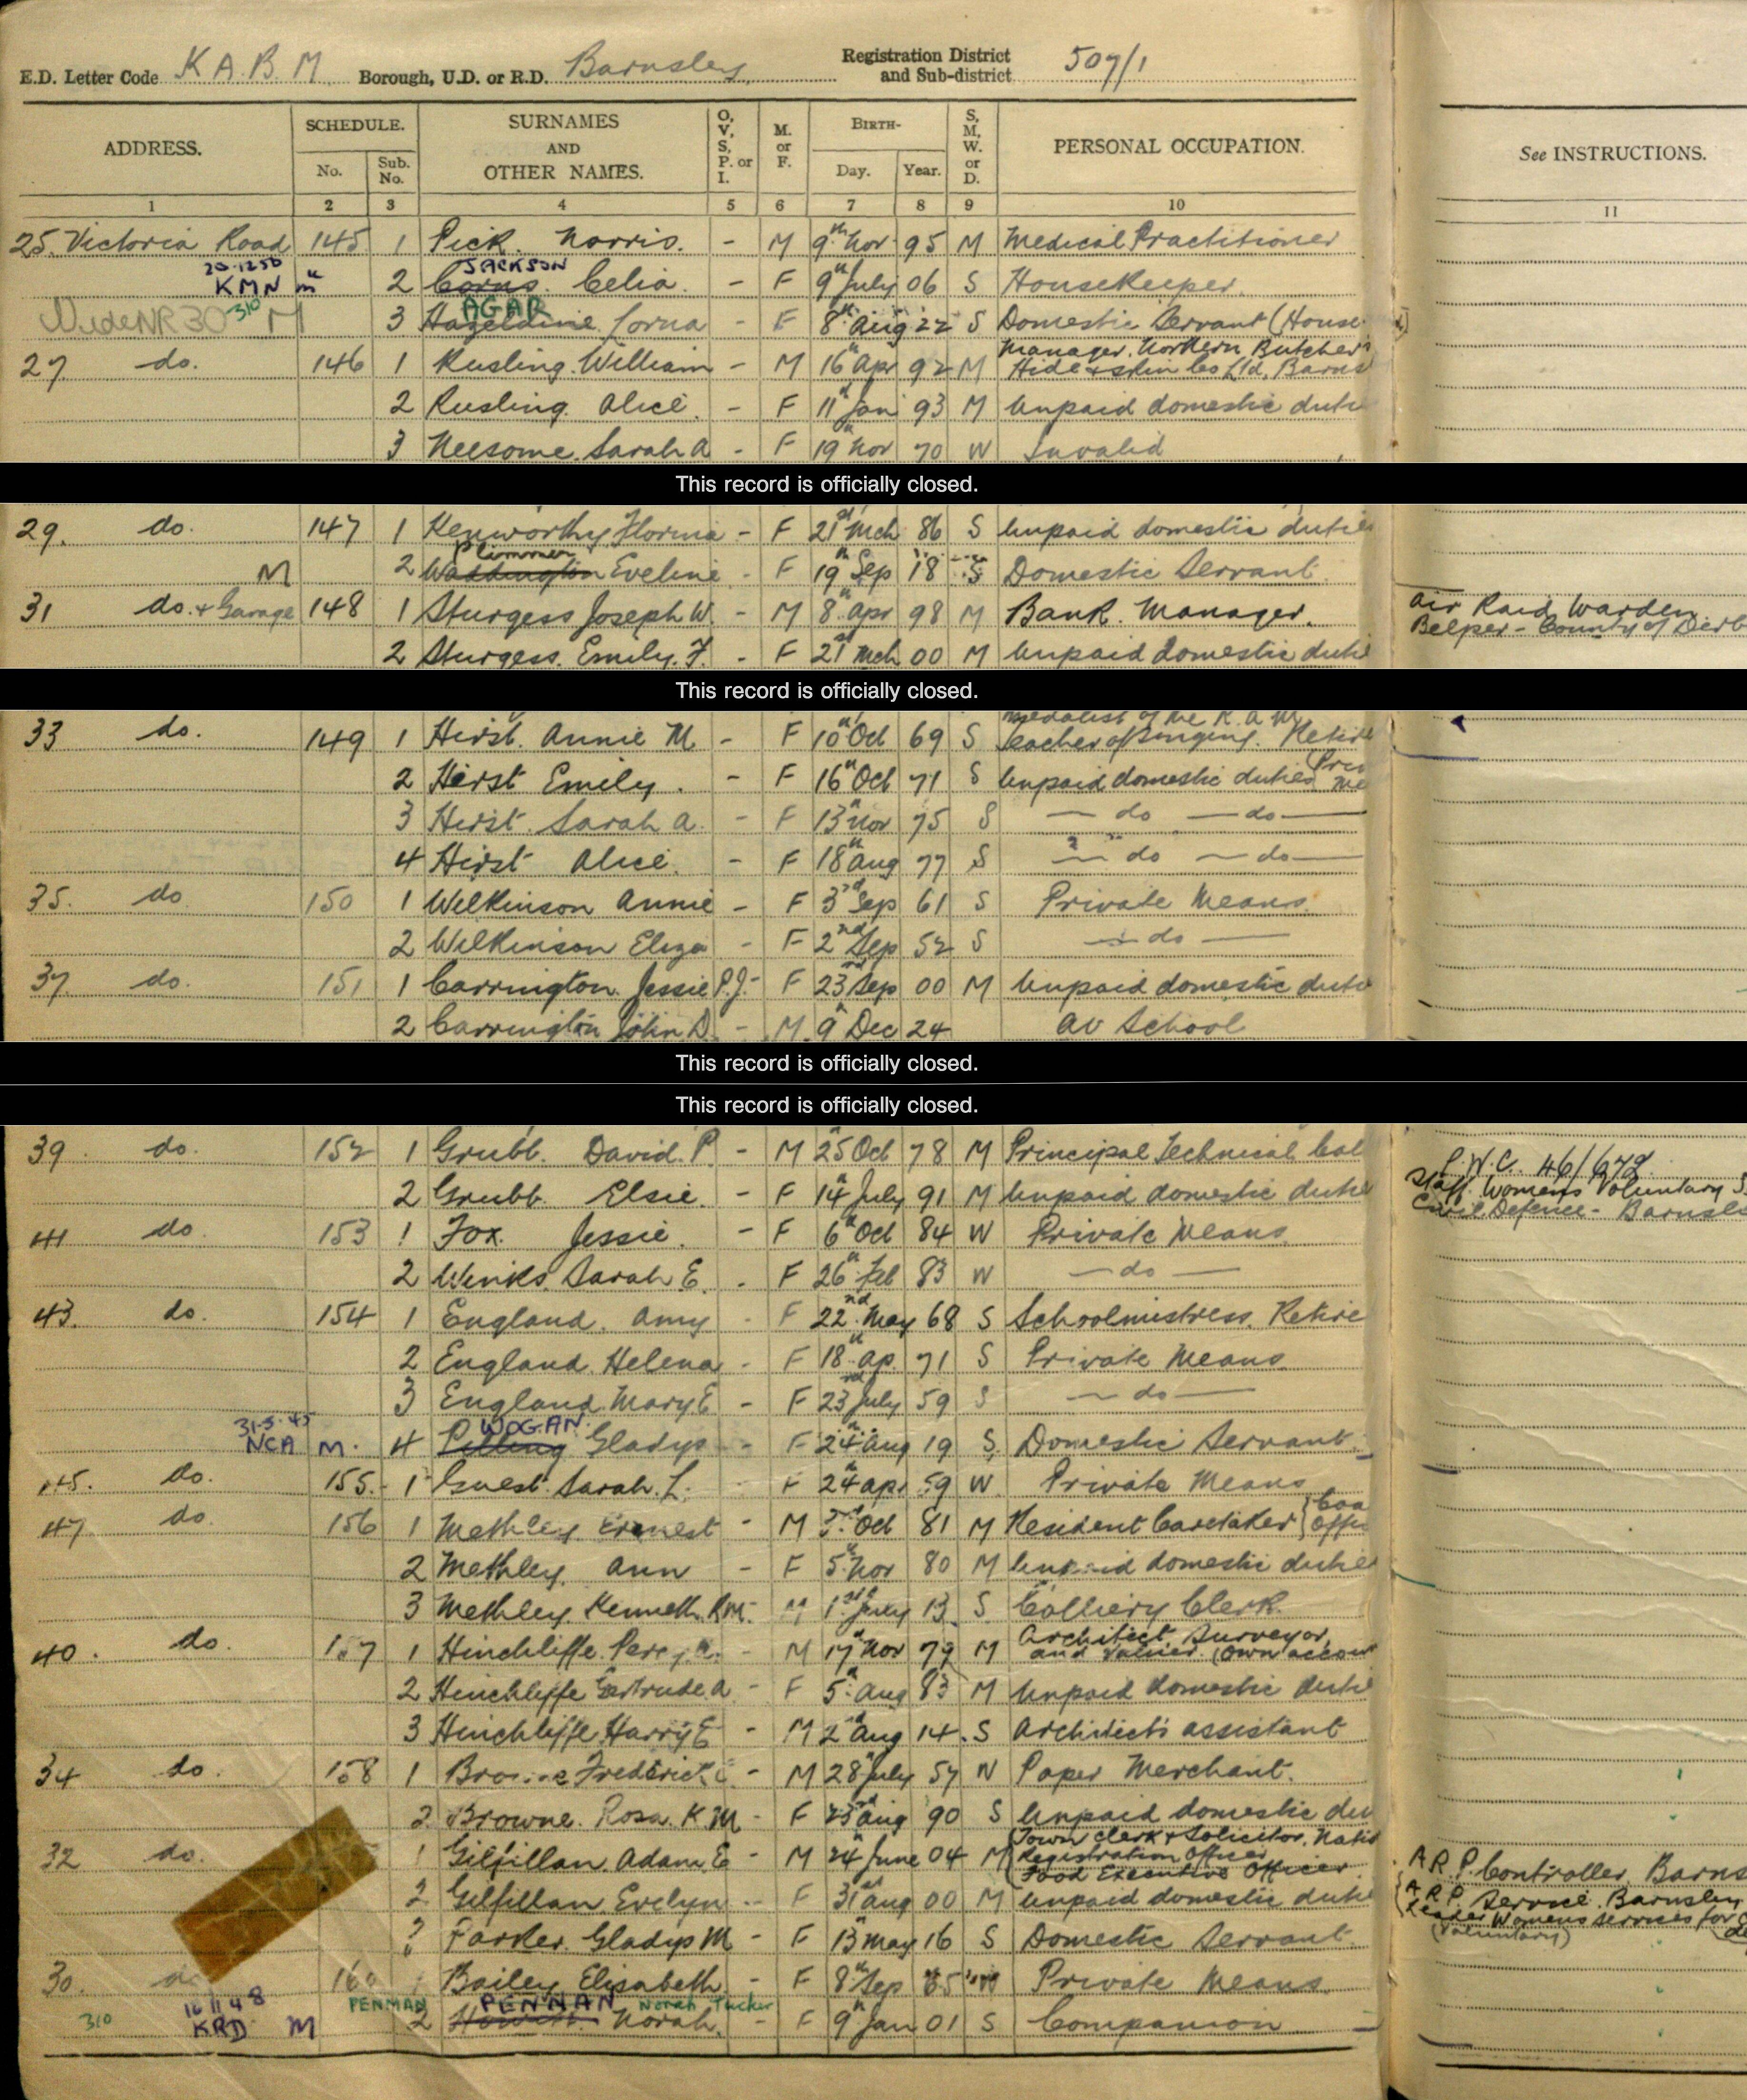 E.D. Letter Code K A B M Borough, U.D. or R.D. Barnsley Registration District and Sub-district 507/1
ADDRESS. SCHEDULE. No. Sub. No. SURNAMES AND OTHER NAMES. O, V, S, P. or I. M. or F. BIRTH- Day. Year. S, M, W. or D. PERSONAL OCCUPATION. See INSTRUCTIONS.
1 2 3 4 5 6 7 8 9 10 11
25. Victoria Road 145 1 Pick. Norris. - M 9th Nov 95 M Medical Practitioner
20.12.50 JACKSON
KMN m 2 Celia. - F 9th July 06 S Housekeeper
310 AGAR
Wide NR 30 M 3 Hazeldine Lorna - F 8th Aug 22 S Domestic Servant (House
Manager. Northern Butchers
27 do. 146 1 Rusling. William - M 16th Apr 92 M Hide & Skin Cos Ltd. Barns
2 Rusling. Alice. - F 11th Jan 93 M Unpaid domestic duti
3 Neesome. Sarah A - F 19th Nov 70 W Invalid
This record is officially closed.
29. do. 147 1 Kenworthy - F 21st Mch 86 S Unpaid domestic dutie
Plummer
M 2 Waddington Eveline - F 19th Sep 18 S Domestic Servant.
31 do. & Garage 148 1 Sturgess Joseph W. - M 8th Apr 98 M Bank Manager. Air Raid Warden
Belper - County of Derb
2 Sturgess. Emily. F. - F 21st Mch 00 M Unpaid domestic dutie
This record is officially closed.
Medalist of the R.A.M.
33 do. 149 1 Hirst. Annie M - F 10th Oct 69 S Teacher of Singing. Retire
2 Hirst Emily. - F 16th Oct 71 S Unpaid domestic duties Priv Me
3 Hirst. Sarah A. - F 13th Nov 75 S — do — do —
4 Hirst Alice. - F 18th Aug 77 S — do — do —
35. do 150 1 Wilkinson Annie - F 3rd Sep 61 S Private Means.
2 Wilkinson Eliza - F 2nd Sep 52 S — do —
37 do. 151 1 Carrington. Jessie P.J. - F 23rd Sep 00 M Unpaid domestic dutie
2 Carrington John D. - M 9th Dec 24 At School
This record is officially closed.
This record is officially closed.
39. do. 152 1 Grubb. David. P. - M 25th Oct 78 M Principal Technical Col P.W.C. 46/672
2 Grubb. Elsie. - F 14th July 91 M Unpaid domestic dutie Staff Womens Voluntary S
Civil Defence - Barnsle
41 do 153 1 Fox. Jessie. - F 6th Oct 84 W Private Means
2 Winks. Sarah E. - F 26th Feb 83 W — do —
43. do. 154 1 England. Amy - F 22nd May 68 S Schoolmistress. Retire
2 England. Helena - F 18th Ap. 71 S Private Means
3 England. Mary E - F 23rd July 59 S — do —
31.3.45 WOGAN.
NCA M. 4 Pilling Gladys - F 24th Aug 19 S. Domestic Servant.
45. do. 155. 1 Guest. Sarah. L. F 24th Apr 59 W. Private Means
47. do. 156 1 Methley. Ernest - M Oct 81 M Resident Caretaker { Coa Offi
2 Methley. Ann - F 5th Nov 80 M Unpaid domestic dutie
3 Methley. Kenneth. R.M. - M 1st July 13. S. Colliery Clerk.
Architect, Surveyor,
40. do. 157 1 Hinchliffe. Percy A. - M 17th Nov 79 M and Valuer (Own accoun
2 Hinchliffe Gertrude A - F 5th Aug 83 M Unpaid domestic dutie
3 Hinchliffe Harry E - M 2nd Aug 14. S Architects assistant
34 do. 158 1 Browne Frederick - M 28th July 57 W Paper Merchant.
2 Browne. Rosa. K M - F 23rd Aug 90 S Unpaid domestic du
(Town Clerk & Solicitor. Natio
32 do. 1 Gilfillan. Adam E - M 24th June 04 M (Registration Officer A.R.P. Controller Barns
(Food Executive Officer
2 Gilfillan Evelyn - F 31st Aug 00 M Unpaid domestic dutie A R P Service. Barnsley
Leader Womens services for
(Voluntary)
3 Parker. Gladys M - F 13th May 16 S Domestic Servant.
30. do 160 1 Bailey Elizabeth - F 8th Sep 65 W Private Means.
16 11 48 PENMAN PENMAN Norah Tucker
310 KRD M 2 Norah. - F 9th Jan 01 S Companion